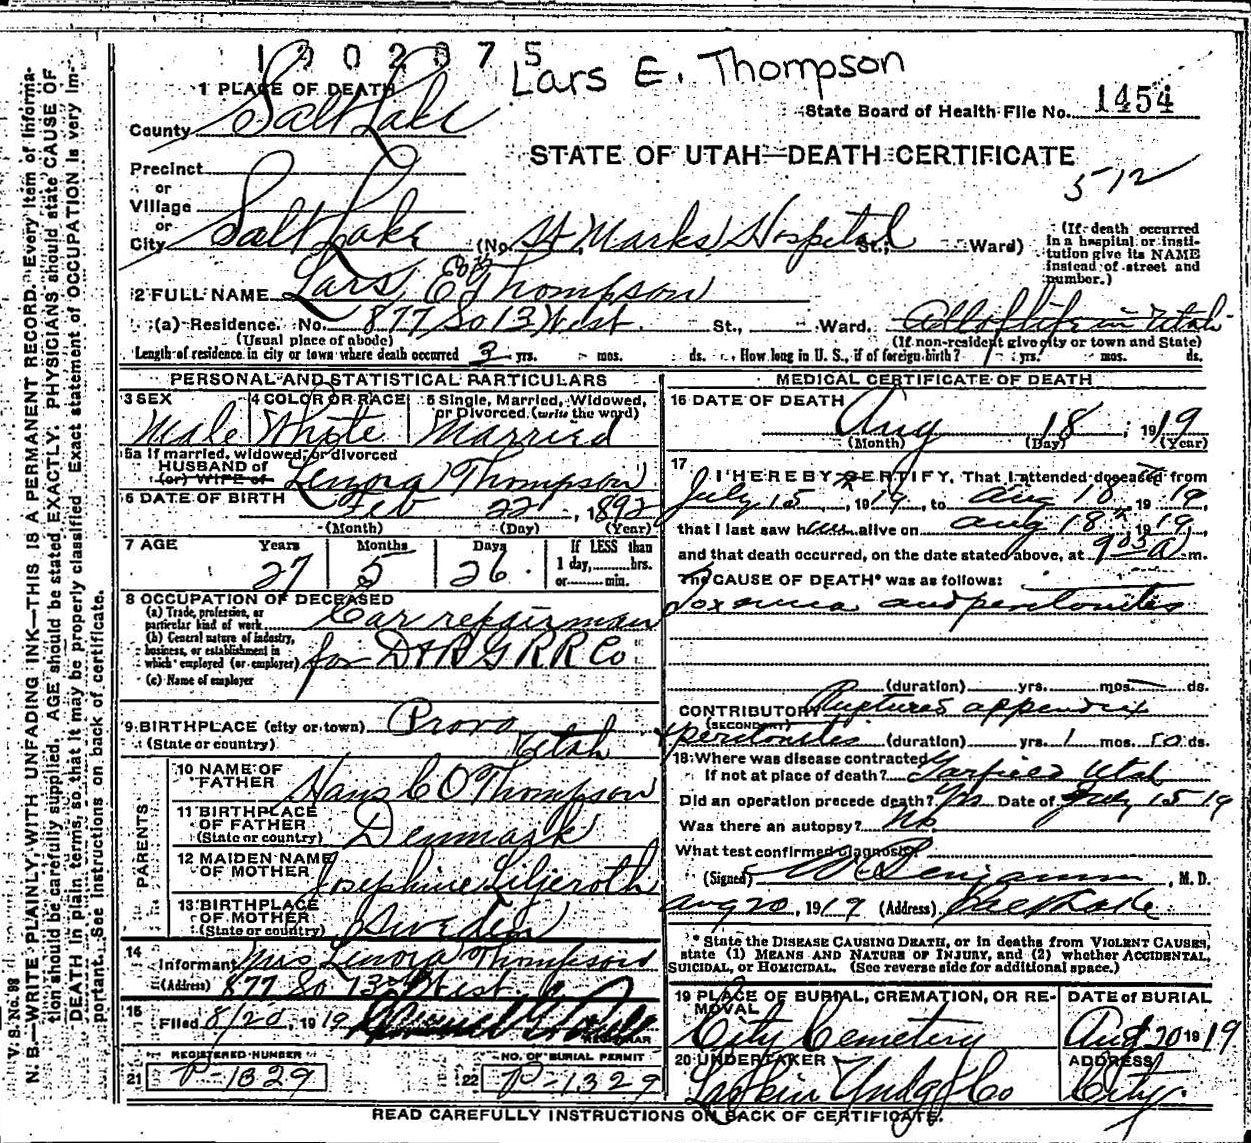 1902075
Lars E. Thompson
1 PLACE OF DEATH
State Board of Health File No. 1454
County Salt Lake
STATE OF UTAH—DEATH CERTIFICATE
512
Precinct
or
Village
or
City Salt Lake (No. St Marks Hospital St.; Ward)
(If death occurred in a hospital or institution give its NAME instead of street and number.)
2 FULL NAME Lars E Thompson
(a) Residence. No. 877 So 13 West St., Ward. All of life in Utah
(Usual place of abode) (If non-resident give city or town and State)
Length of residence in city or town where death occurred 3 yrs. mos. ds. How long in U. S., if of foreign birth? yrs. mos. ds.
PERSONAL AND STATISTICAL PARTICULARS
3 SEX Male
4 COLOR OR RACE White
5 Single, Married, Widowed, or Divorced (write the word) Married
5a If married, widowed, or divorced
HUSBAND of
(or) WIFE of Lenora Thompson
6 DATE OF BIRTH Feb 22, 1892
(Month) (Day) (Year)
7 AGE Years 27 Months 5 Days 26
If LESS than 1 day, hrs. or min.
8 OCCUPATION OF DECEASED
(a) Trade, profession, or particular kind of work Car repairman
(b) General nature of industry, business, or establishment in which employed (or employer) for D & R G R R Co
(c) Name of employer
9 BIRTHPLACE (city or town) Provo
(State or country) Utah
PARENTS
10 NAME OF FATHER Hans C O Thompson
11 BIRTHPLACE OF FATHER (State or country) Denmark
12 MAIDEN NAME OF MOTHER Josephine Liljeroth
13 BIRTHPLACE OF MOTHER (State or country) Sweden
14 Informant Mrs Lenora Thompson
(Address) 877 So 13th West
15 Filed 8/20, 1919
REGISTRAR
REGISTERED NUMBER
21 P-1329
NO. OF BURIAL PERMIT
22 P-1329
MEDICAL CERTIFICATE OF DEATH
16 DATE OF DEATH Aug 18, 1919
(Month) (Day) (Year)
17 I HEREBY CERTIFY, That I attended deceased from
July 15, 1919, to Aug 18 1919,
that I last saw him alive on Aug 18th 1919,
and that death occurred, on the date stated above, at 9:05 A. m.
The CAUSE OF DEATH* was as follows:
Toxemia and peritonitis
(duration) yrs. mos. ds.
CONTRIBUTORY Ruptured appendix
(SECONDARY)
peritonitis (duration) yrs. 1 mos. ds.
18 Where was disease contracted
If not at place of death? Garfield Utah
Did an operation precede death? Yes Date of July 15 19
Was there an autopsy? No
What test confirmed diagnosis?
(Signed) Benjamin, M. D.
Aug 20, 1919 (Address) Salt Lake
* State the DISEASE CAUSING DEATH, or in deaths from VIOLENT CAUSES,
state (1) MEANS AND NATURE OF INJURY, and (2) whether ACCIDENTAL,
SUICIDAL, or HOMICIDAL. (See reverse side for additional space.)
19 PLACE OF BURIAL, CREMATION, OR REMOVAL City Cemetery
DATE of BURIAL Aug 20 1919
20 UNDERTAKER Larkin Undg Co
ADDRESS City.
READ CAREFULLY INSTRUCTIONS ON BACK OF CERTIFICATE.
V. S. No. 98
N. B.—WRITE PLAINLY, WITH UNFADING INK—THIS IS A PERMANENT RECORD. Every item of informa-
tion should be carefully supplied. AGE should be stated EXACTLY. PHYSICIANS should state CAUSE OF
DEATH in plain terms, so that it may be properly classified. Exact statement of OCCUPATION is very im-
portant. See instructions on back of certificate.